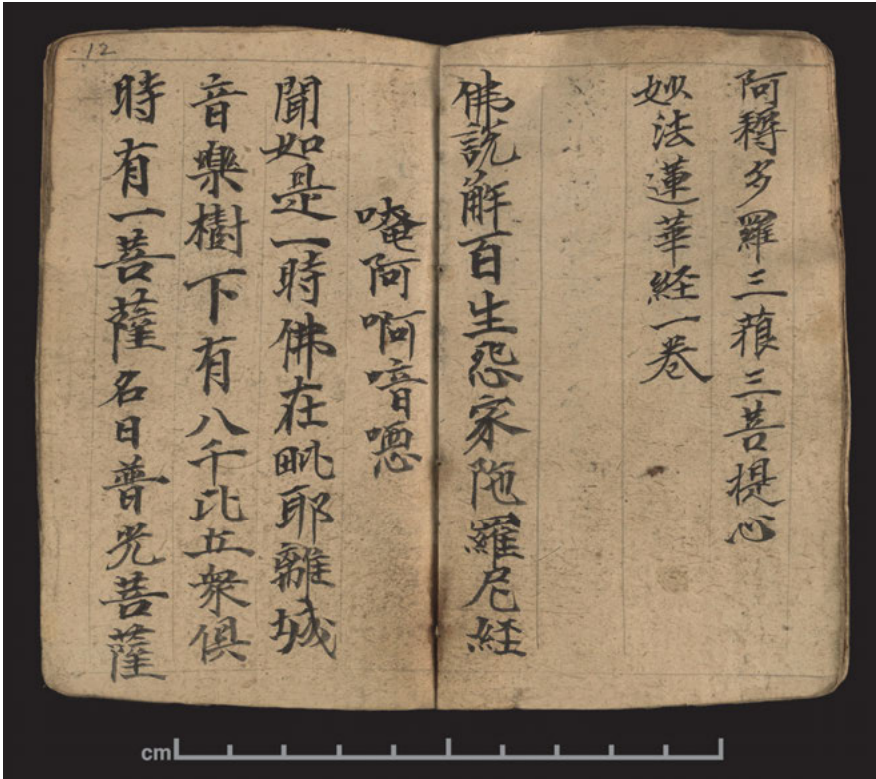 阿耨多羅三藐三菩提心
妙法蓮華経一卷
佛説解百生怨家陁羅尼経
唵阿啊喑噁
聞如是一時佛在毗耶離城
音樂樹下有八千比丘衆俱
時有一菩薩名曰普光菩薩
12
cm